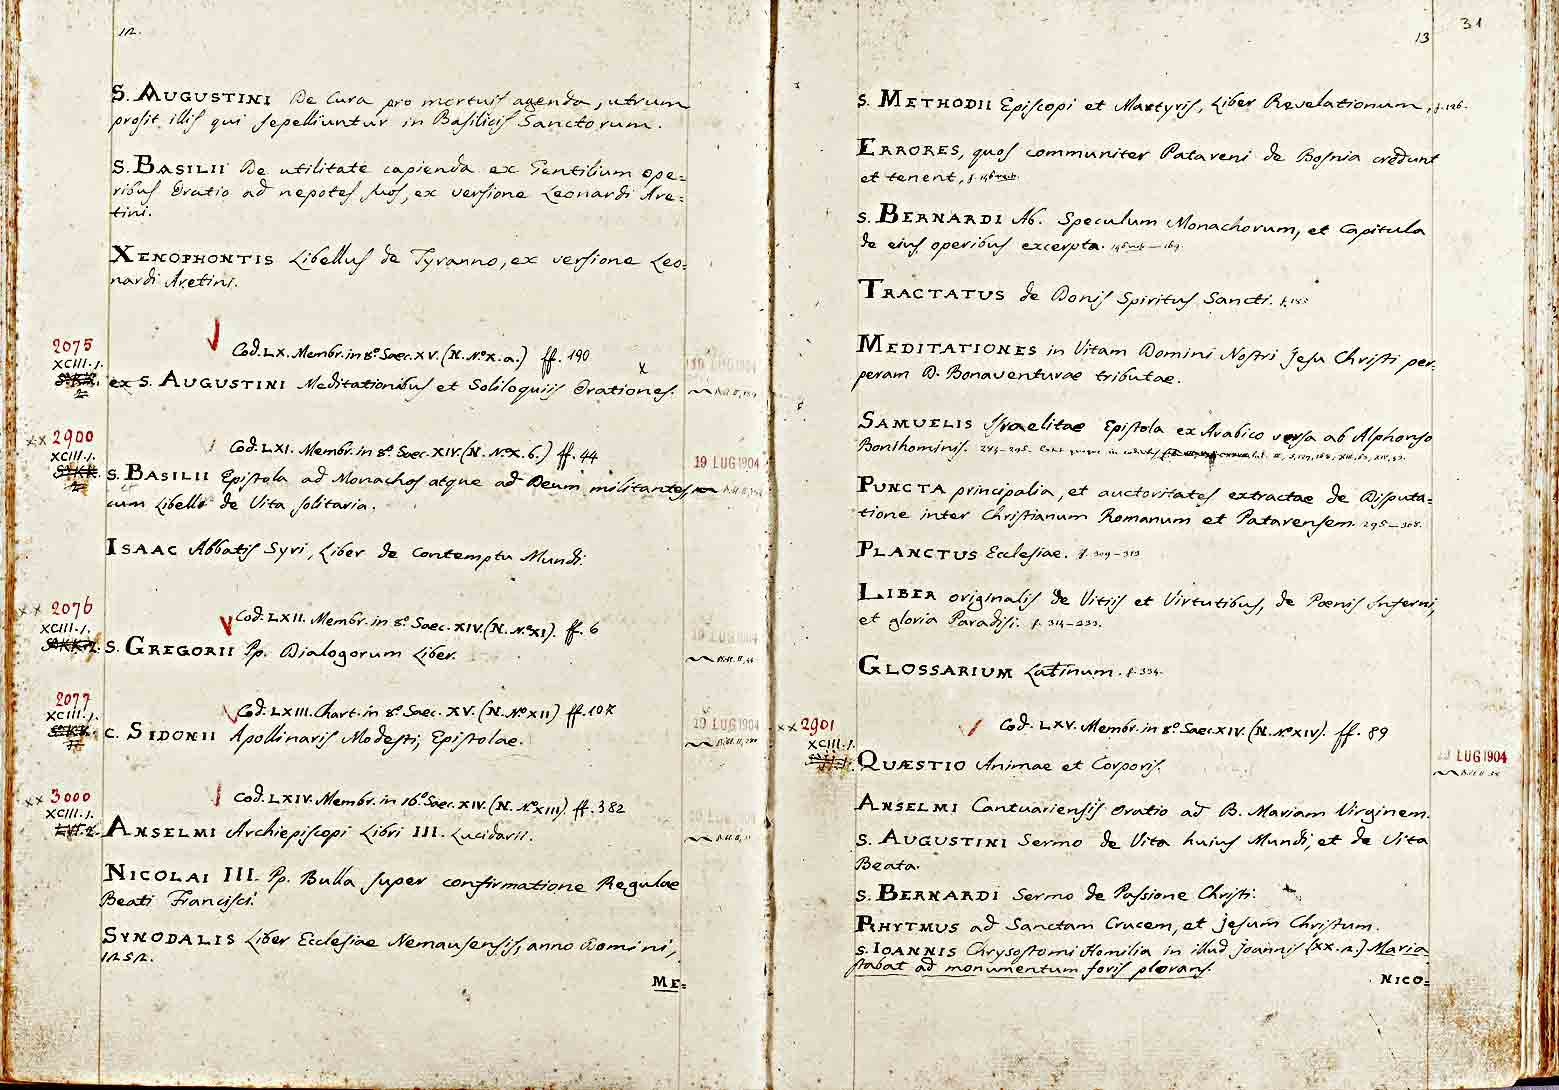 12.
S. AUGUSTINI De Cura pro mortuis agenda, utrum
prosit illis qui sepelliuntur in Basilicis Sanctorum.
S. BASILII De utilitate capienda ex Gentilium ope=
ribus Oratio ad nepotes suos, ex versione Leonardi Are=
tini.
XENOPHONTIS Libellus de Tyranno, ex versione Leo=
nardi Aretini.
2075
XCIII.1.
Cod. LX. Membr. in 8.º Saec. XV. (N. Nº X. a.) ff. 190
19 LUG 1904
ex S. AUGUSTINI Meditationibus et Soliloquiis Orationes.
xx 2900
XCIII.1.
Cod. LXI. Membr. in 8.º Saec. XIV. (N. Nº X. b.) ff. 44
19 LUG 1904
S. BASILII Epistola ad Monachos atque ad Deum militantes,
cum Libello de Vita solitaria.
ISAAC Abbatis Syri, Liber de Contemptu Mundi.
xx 2076
XCIII.1.
Cod. LXII. Membr. in 8.º Saec. XIV. (N. Nº XI). ff. 6
19 LUG 1904
S. GREGORII Pp. Dialogorum Liber.
2077
XCIII.1.
Cod. LXIII. Chart. in 8.º Saec. XV. (N. Nº XII) ff. 107
19 LUG 1904
C. SIDONII Apollinaris Modesti, Epistolae.
xx 3000
XCIII.1.
Cod. LXIV. Membr. in 16.º Saec. XIV. (N. Nº XIII). ff. 382
19 LUG 1904
ANSELMI Archiepiscopi Libri III. Lucidarii.
NICOLAI III. Pp. Bulla super confirmatione Regulae
Beati Francisci.
SYNODALIS Liber Ecclesiae Nemausensis, anno Domini,
1252.
ME=
13
31
S. METHODII Episcopi et Martyris, Liber Revelationum, f. 126.
ERRORES, quos communiter Patareni de Bosnia credunt
et tenent,
S. BERNARDI Ab. Speculum Monachorum, et Capitula
de eius operibus excerpta.
TRACTATUS de Donis Spiritus Sancti.
MEDITATIONES in Vitam Domini Nostri Jesu Christi per=
peram D. Bonaventurae tributae.
SAMUELIS Israelitae Epistola ex Arabico versa ab Alphonso
Bonihominis.
PUNCTA principalia, et auctoritates extractae de Disputa=
tione inter Christianum Romanum et Patarensem. 295—308.
PLANCTUS Ecclesiae. f. 309—313
LIBER originalis de Vitiis et Virtutibus, de Poenis Inferni,
et gloria Paradisi. f. 314—333.
GLOSSARIUM Latinum. f. 334.
xx 2901
XCIII.1.
Cod. LXV. Membr. in 8.º Saec. XIV. (N. Nº XIV). ff. 89
19 LUG 1904
QUÆSTIO Animae et Corporis.
ANSELMI Cantuariensis Oratio ad B. Mariam Virginem.
S. AUGUSTINI Sermo de Vita huius Mundi, et de Vita
Beata.
S. BERNARDI Sermo de Passione Christi.
RHYTMUS ad Sanctam Crucem, et Jesum Christum.
S. IOANNIS Chrysostomi Homilia in illud Joannis (XX. 2.) Maria
stabat ad monumentum foris plorans.
NICO=